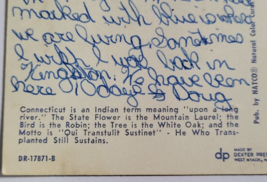 marked with blue is where
we are living. Sometimes
I wish I was back in
Kingston. We have been
here 10 days. Doug
Connecticut is an Indian term meaning "upon a long
river." The State Flower is the Mountain Laurel; the
Bird is the Robin; the Tree is the White Oak; and
the Motto is "Qui Transtulit Sustinet" - He Who Trans-
planted Still Sustains.
DR-17871-B
Pub. by NATCO® Natural Color
dp
MADE BY
DEXTER PRESS
WEST NYACK,